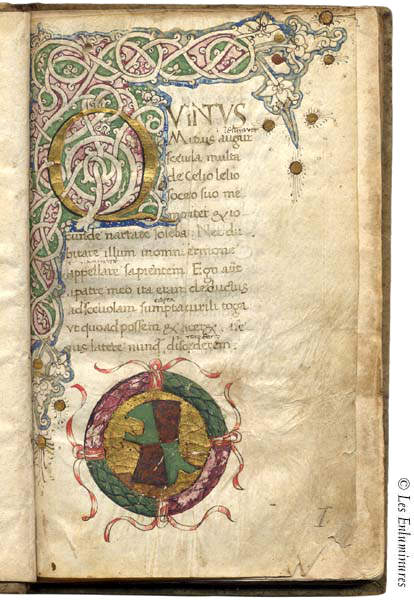 QVINTVS
Mutius augur
sceuola multa
de Celio lelio
socero suo me
moriter & io
cunde narrare soleba Nec du
bitare illum inomni ermone
appellare sapientem. Ego aut
patre meo ita eram deductus
adsceuolam sumpta uirili toga
vt quoad possem &
latere nunq discederem.
I
© Les Enluminures